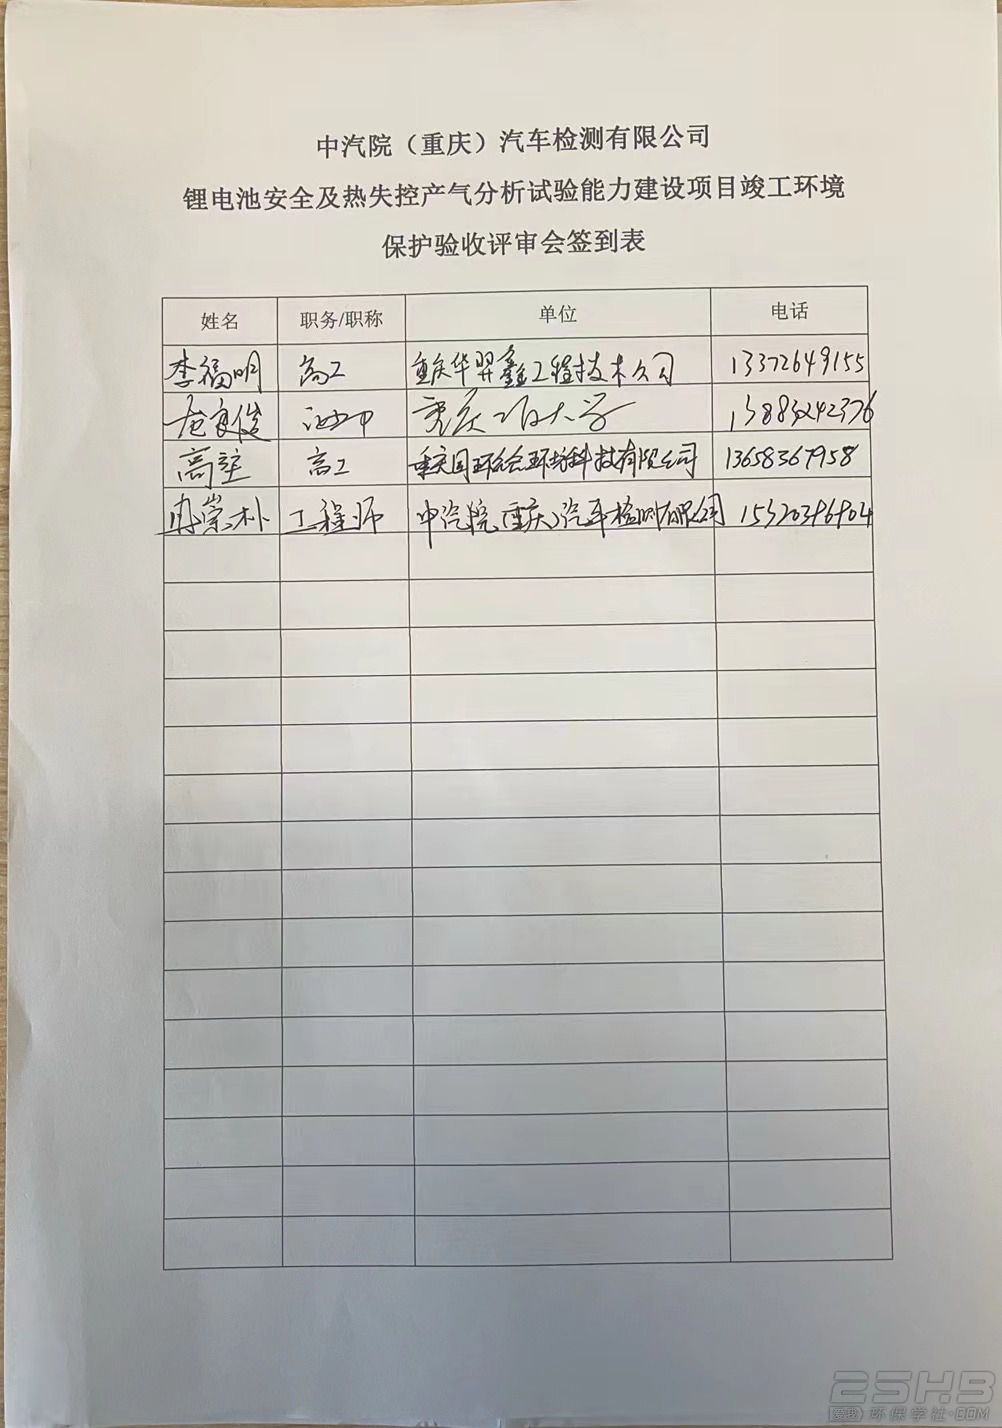 中汽院（重庆）汽车检测有限公司
锂电池安全及热失控产气分析试验能力建设项目竣工环境
保护验收评审会签到表
姓名 职务/职称 单位 电话
李福明 高工 重庆华羿鑫工程技术公司 13372649155
龙良俊 重庆工商大学 13883242376
高 高工 重庆国环绘环境科技有限公司 13658367958
冉崇朴 工程师 中汽院(重庆)汽车检测有限公司 15320396904
25HB
爱我 环保学社·COM